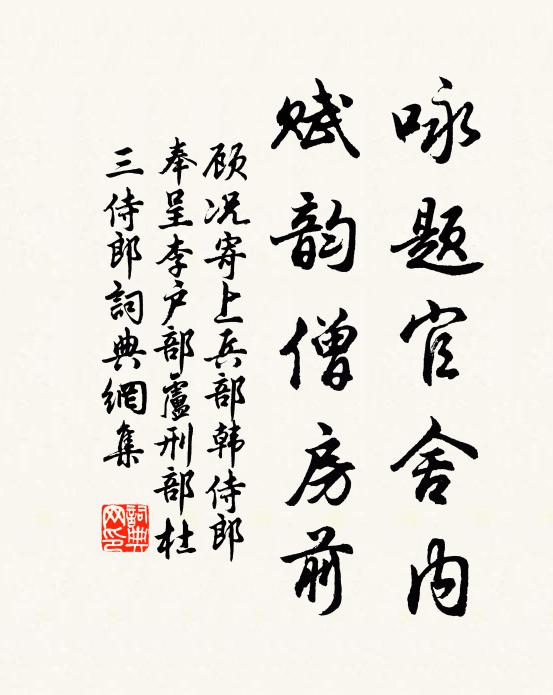 咏题官舍内
赋韵僧房前
顾况寄上兵部韩侍郎
奉呈李户部卢刑部杜
三侍郎詞典網集
詞典
网印